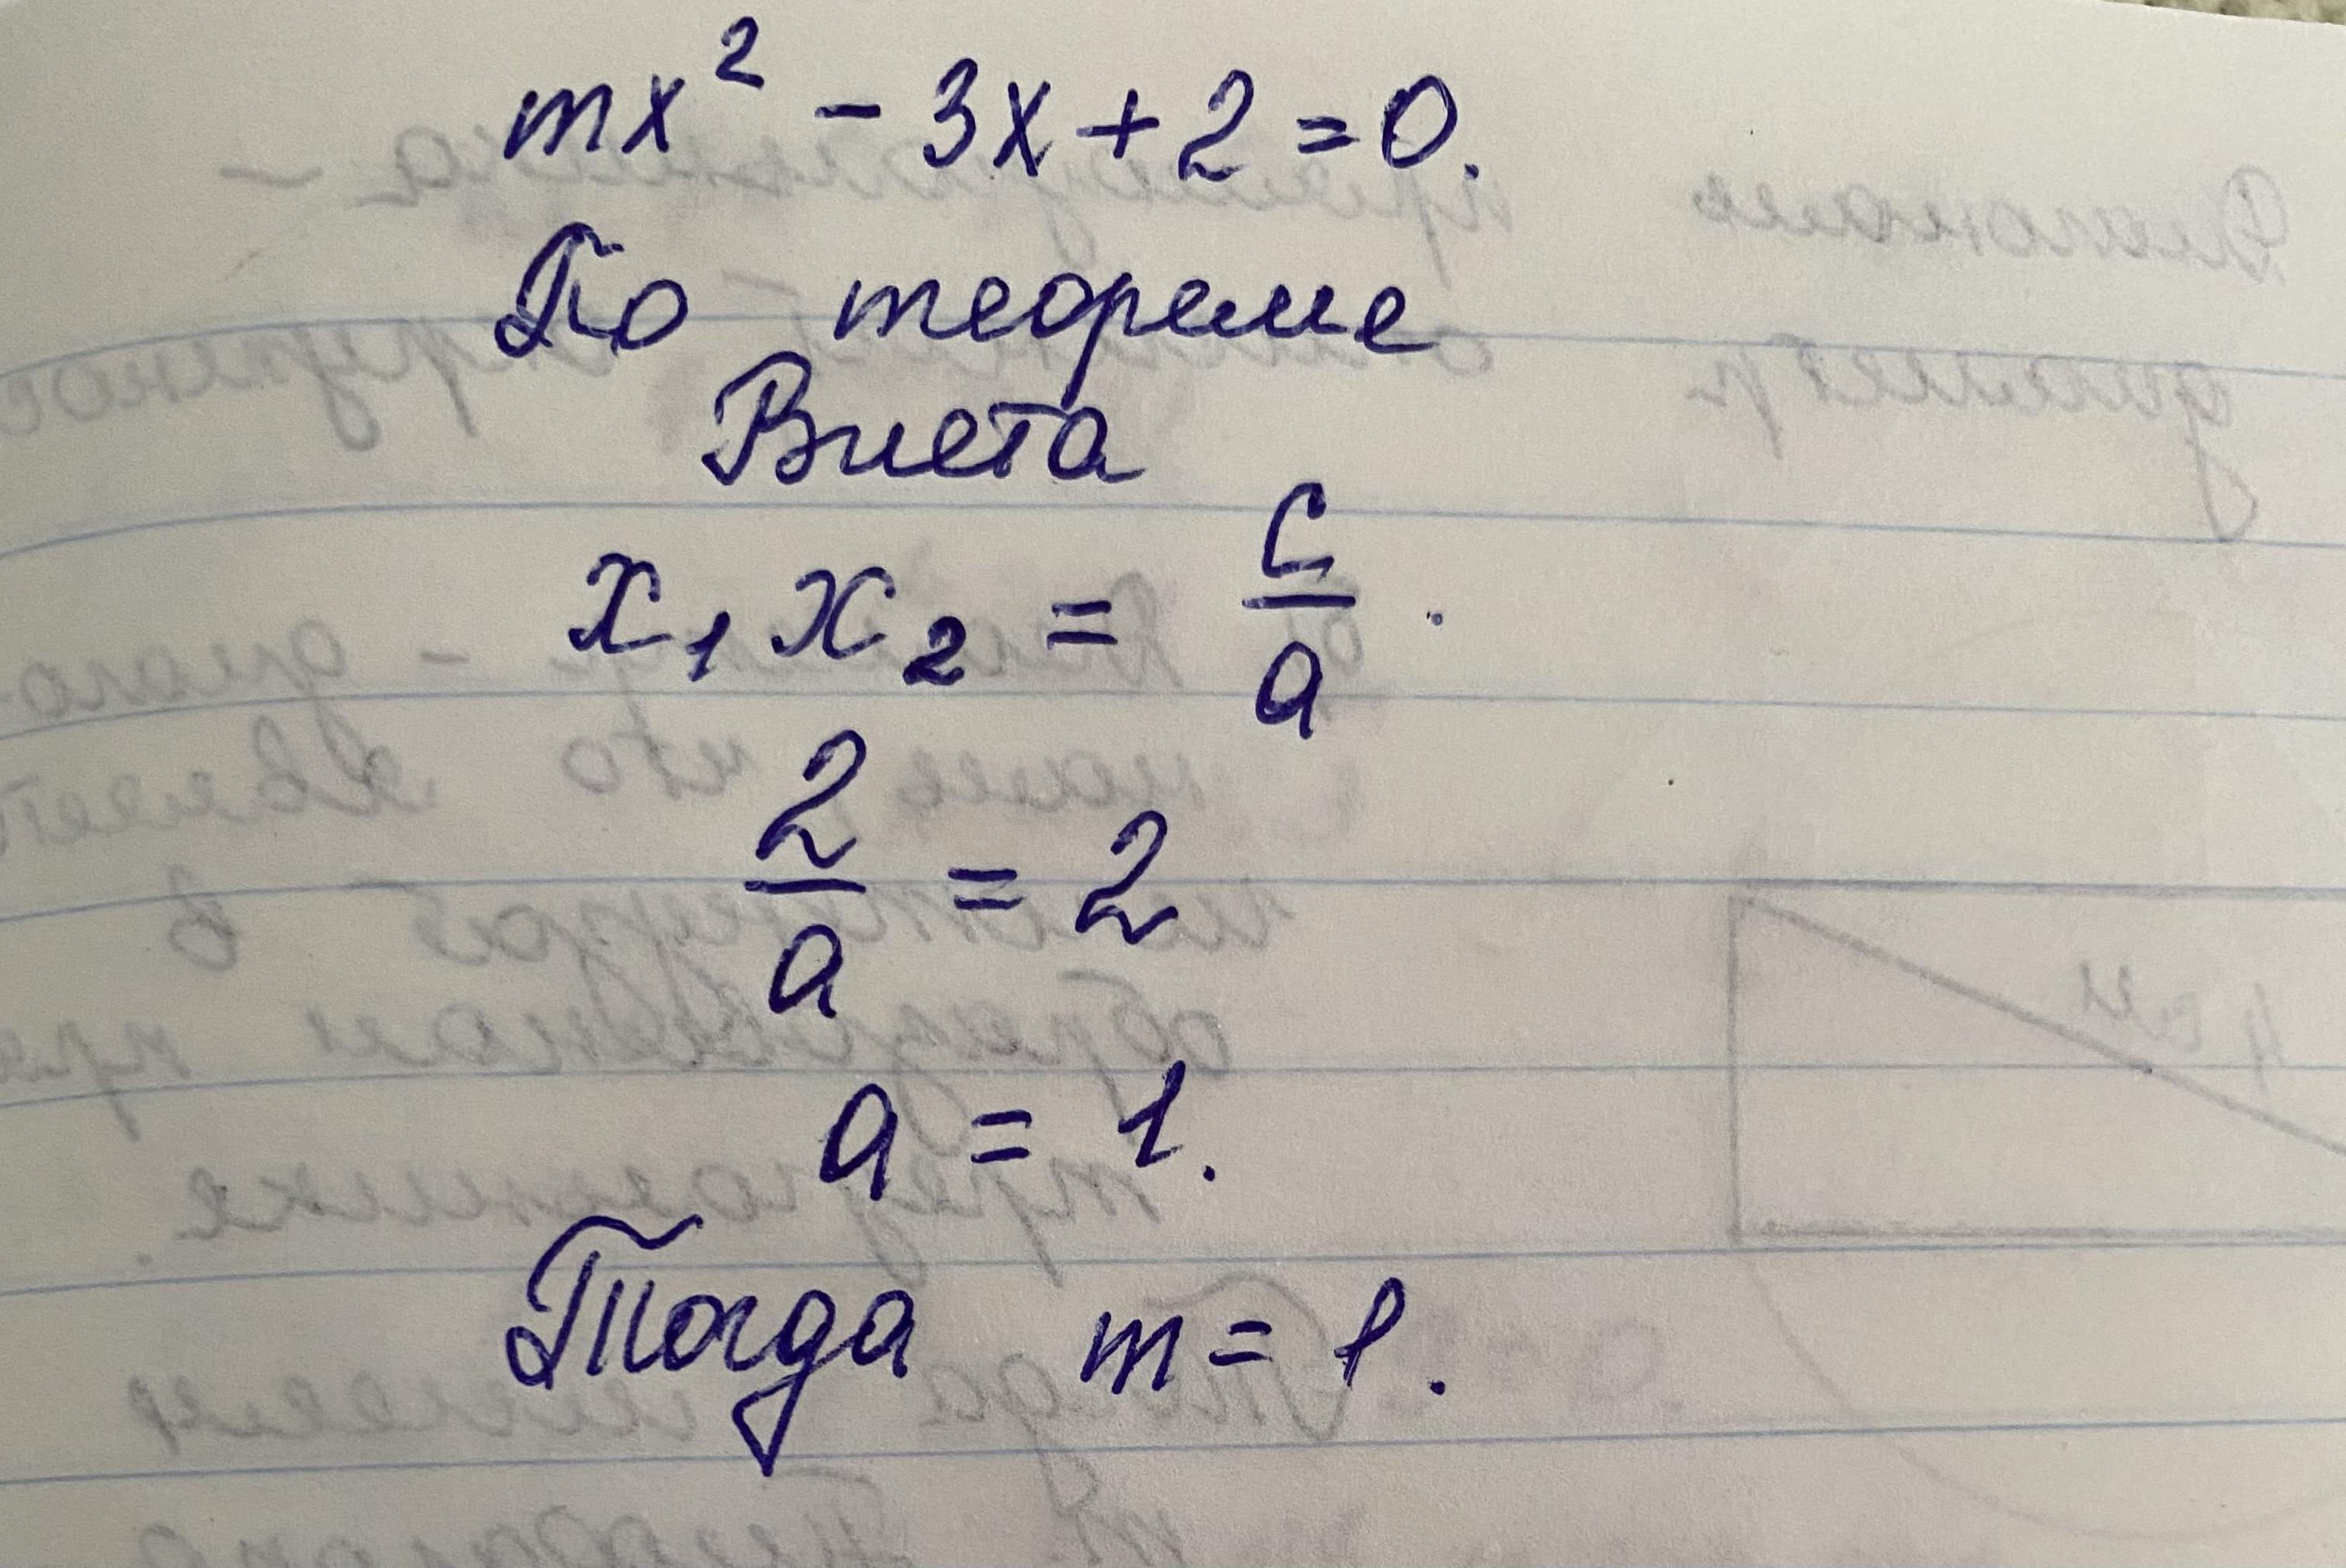 mx² - 3x + 2 = 0.
По теореме
Виета
x₁ x₂ = c/a.
2/a = 2
a = 1.
Тогда m = 1.